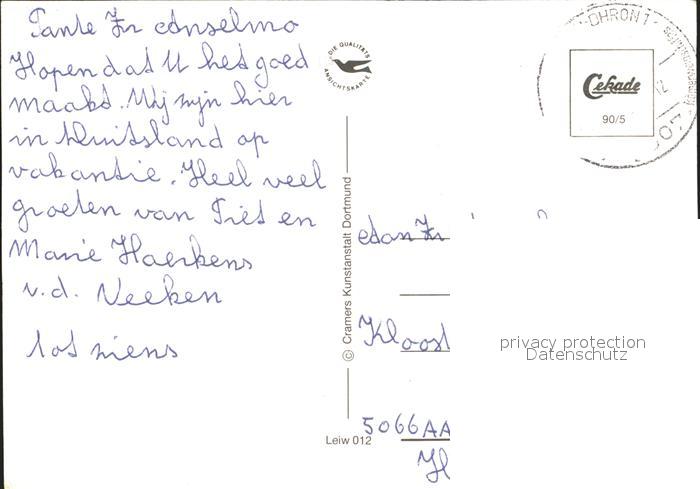 Tante Zr Anselmo
Hopen dat U het goed
maakt. Wij zijn hier
in Duitsland op
vakantie. Heel veel
groeten van Piet en
Marie Haerkens
v.d. Neeken
tot ziens
DIE QUALITÄTS
ANSICHTSKARTE
© Cramers Kunstanstalt Dortmund
Leiw 012
DHRON 1
Cekade
90/5
Aan Zr
Kloost
5066AA
H
privacy protection
Datenschutz